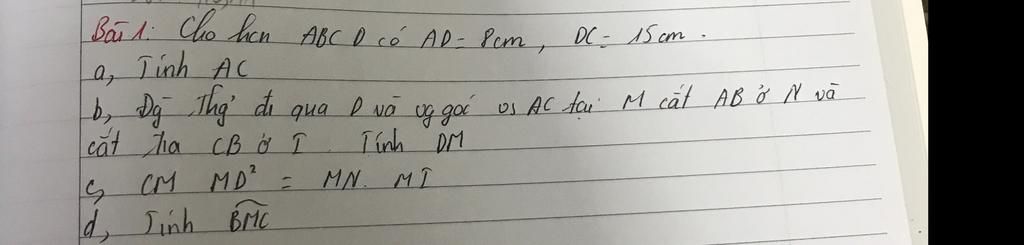 Bài 1: Cho hcn ABCD có AD = 8cm, DC = 15cm.
a, Tính AC
b, Đg thg' đi qua D và vg góc vs AC tại M cắt AB ở N và
cắt tia CB ở I. Tính DM
c, CM MD² = MN. MI
d, Tính BMC